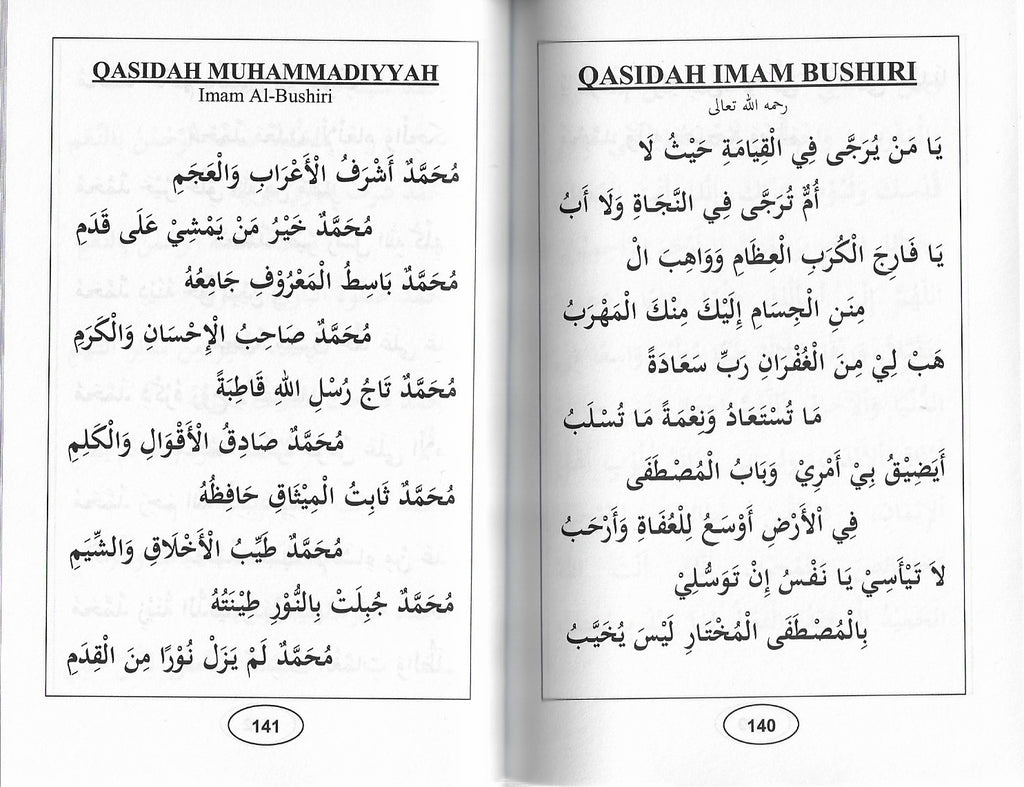 QASIDAH IMAM BUSHIRI
رحمه الله تعالى
يَا مَنْ يُرَجَّى فِي الْقِيَامَةِ حَيْثُ لَا
أُمٌّ تُرَجَّى فِي النَّجَاةِ وَلَا أَبُ
يَا فَارِجَ الْكُرَبِ الْعِظَامِ وَوَاهِبَ الْ
مِنَنِ الْجِسَامِ إِلَيْكَ مِنْكَ الْمَهْرَبُ
هَبْ لِيْ مِنَ الْغُفْرَانِ رَبِّ سَعَادَةً
مَا تُسْتَعَادُ وَنِعْمَةً مَا تُسْلَبُ
أَيَضِيْقُ بِيْ أَمْرِيْ وَبَابُ الْمُصْطَفَى
فِي الْأَرْضِ أَوْسَعُ لِلْعُفَاةِ وَأَرْحَبُ
لاَ تَيْأَسِيْ يَا نَفْسُ إِنْ تَوَسُّلِيْ
بِالْمُصْطَفَى الْمُخْتَارِ لَيْسَ يُخَيَّبُ
140
QASIDAH MUHAMMADIYYAH
Imam Al-Bushiri
مُحَمَّدٌ أَشْرَفُ الْأَعْرَابِ وَالْعَجَمِ
مُحَمَّدٌ خَيْرُ مَنْ يَمْشِيْ عَلَى قَدَمِ
مُحَمَّدٌ بَاسِطُ الْمَعْرُوْفِ جَامِعُهُ
مُحَمَّدٌ صَاحِبُ الْإِحْسَانِ وَالْكَرَمِ
مُحَمَّدٌ تَاجُ رُسْلِ اللهِ قَاطِبَةً
مُحَمَّدٌ صَادِقُ الْأَقْوَالِ وَالْكَلِمِ
مُحَمَّدٌ ثَابِتُ الْمِيْثَاقِ حَافِظُهُ
مُحَمَّدٌ طَيِّبُ الْأَخْلَاقِ وَالشِّيَمِ
مُحَمَّدٌ جُبِلَتْ بِالنُّوْرِ طِيْنَتُهُ
مُحَمَّدٌ لَمْ يَزَلْ نُوْرًا مِنَ الْقِدَمِ
141